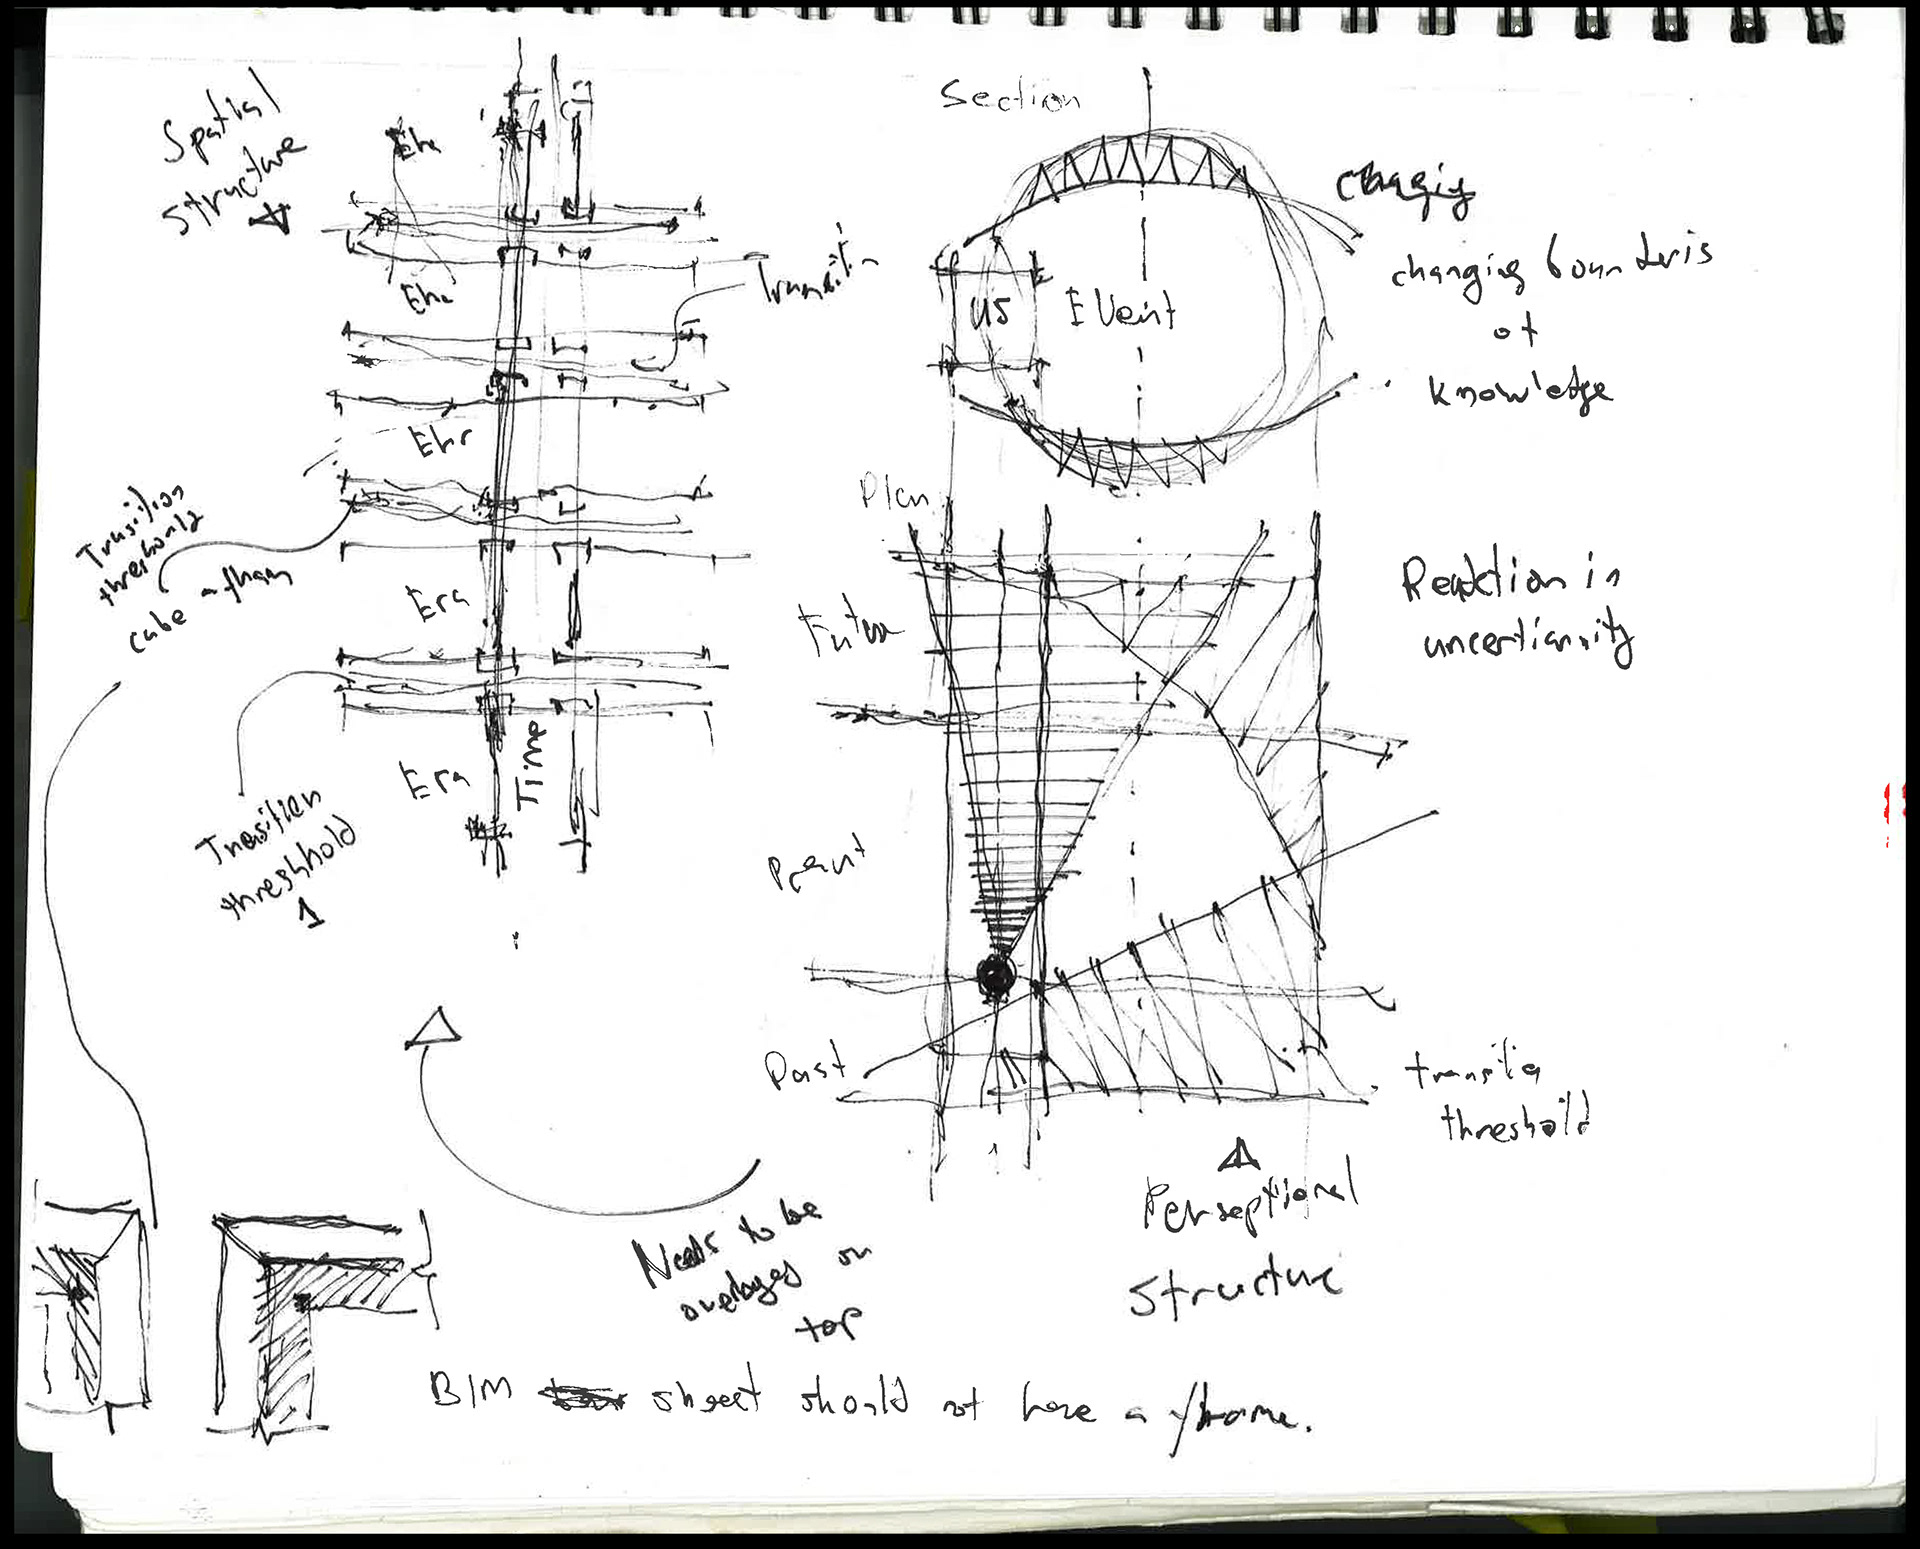 Spatial
structure
Era
Era
Transitin
Ehr
Trasition
threshonlz
cube a fham
Era
Era
Time
Transitien
threshhold
1
Section
US
EVent
changing bounderis
of
knowledge
Plan
Future
Past
Reaktion in
uncertianity
transitio
threshold
Perseptional
structure
Needs to be
overlayes on
top
BIM sheet should not have a frame.